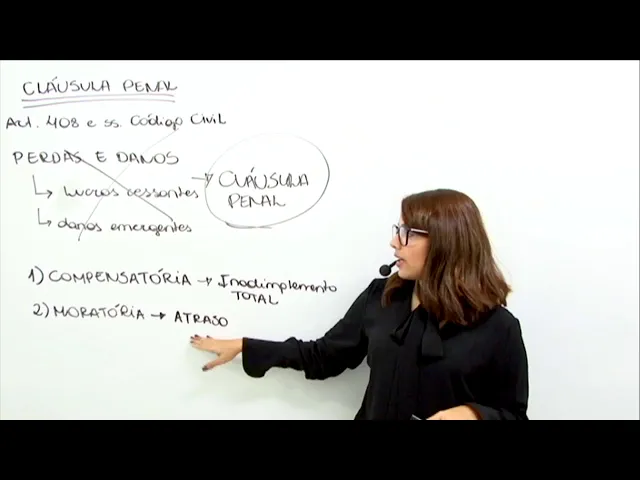 CLÁUSULA PENAL
Art. 408 e ss. Código Civil
PERDAS E DANOS
↳ lucros cessantes → CLÁUSULA PENAL
↳ danos emergentes
1) COMPENSATÓRIA → Inadimplemento TOTAL
2) MORATÓRIA → ATRASO